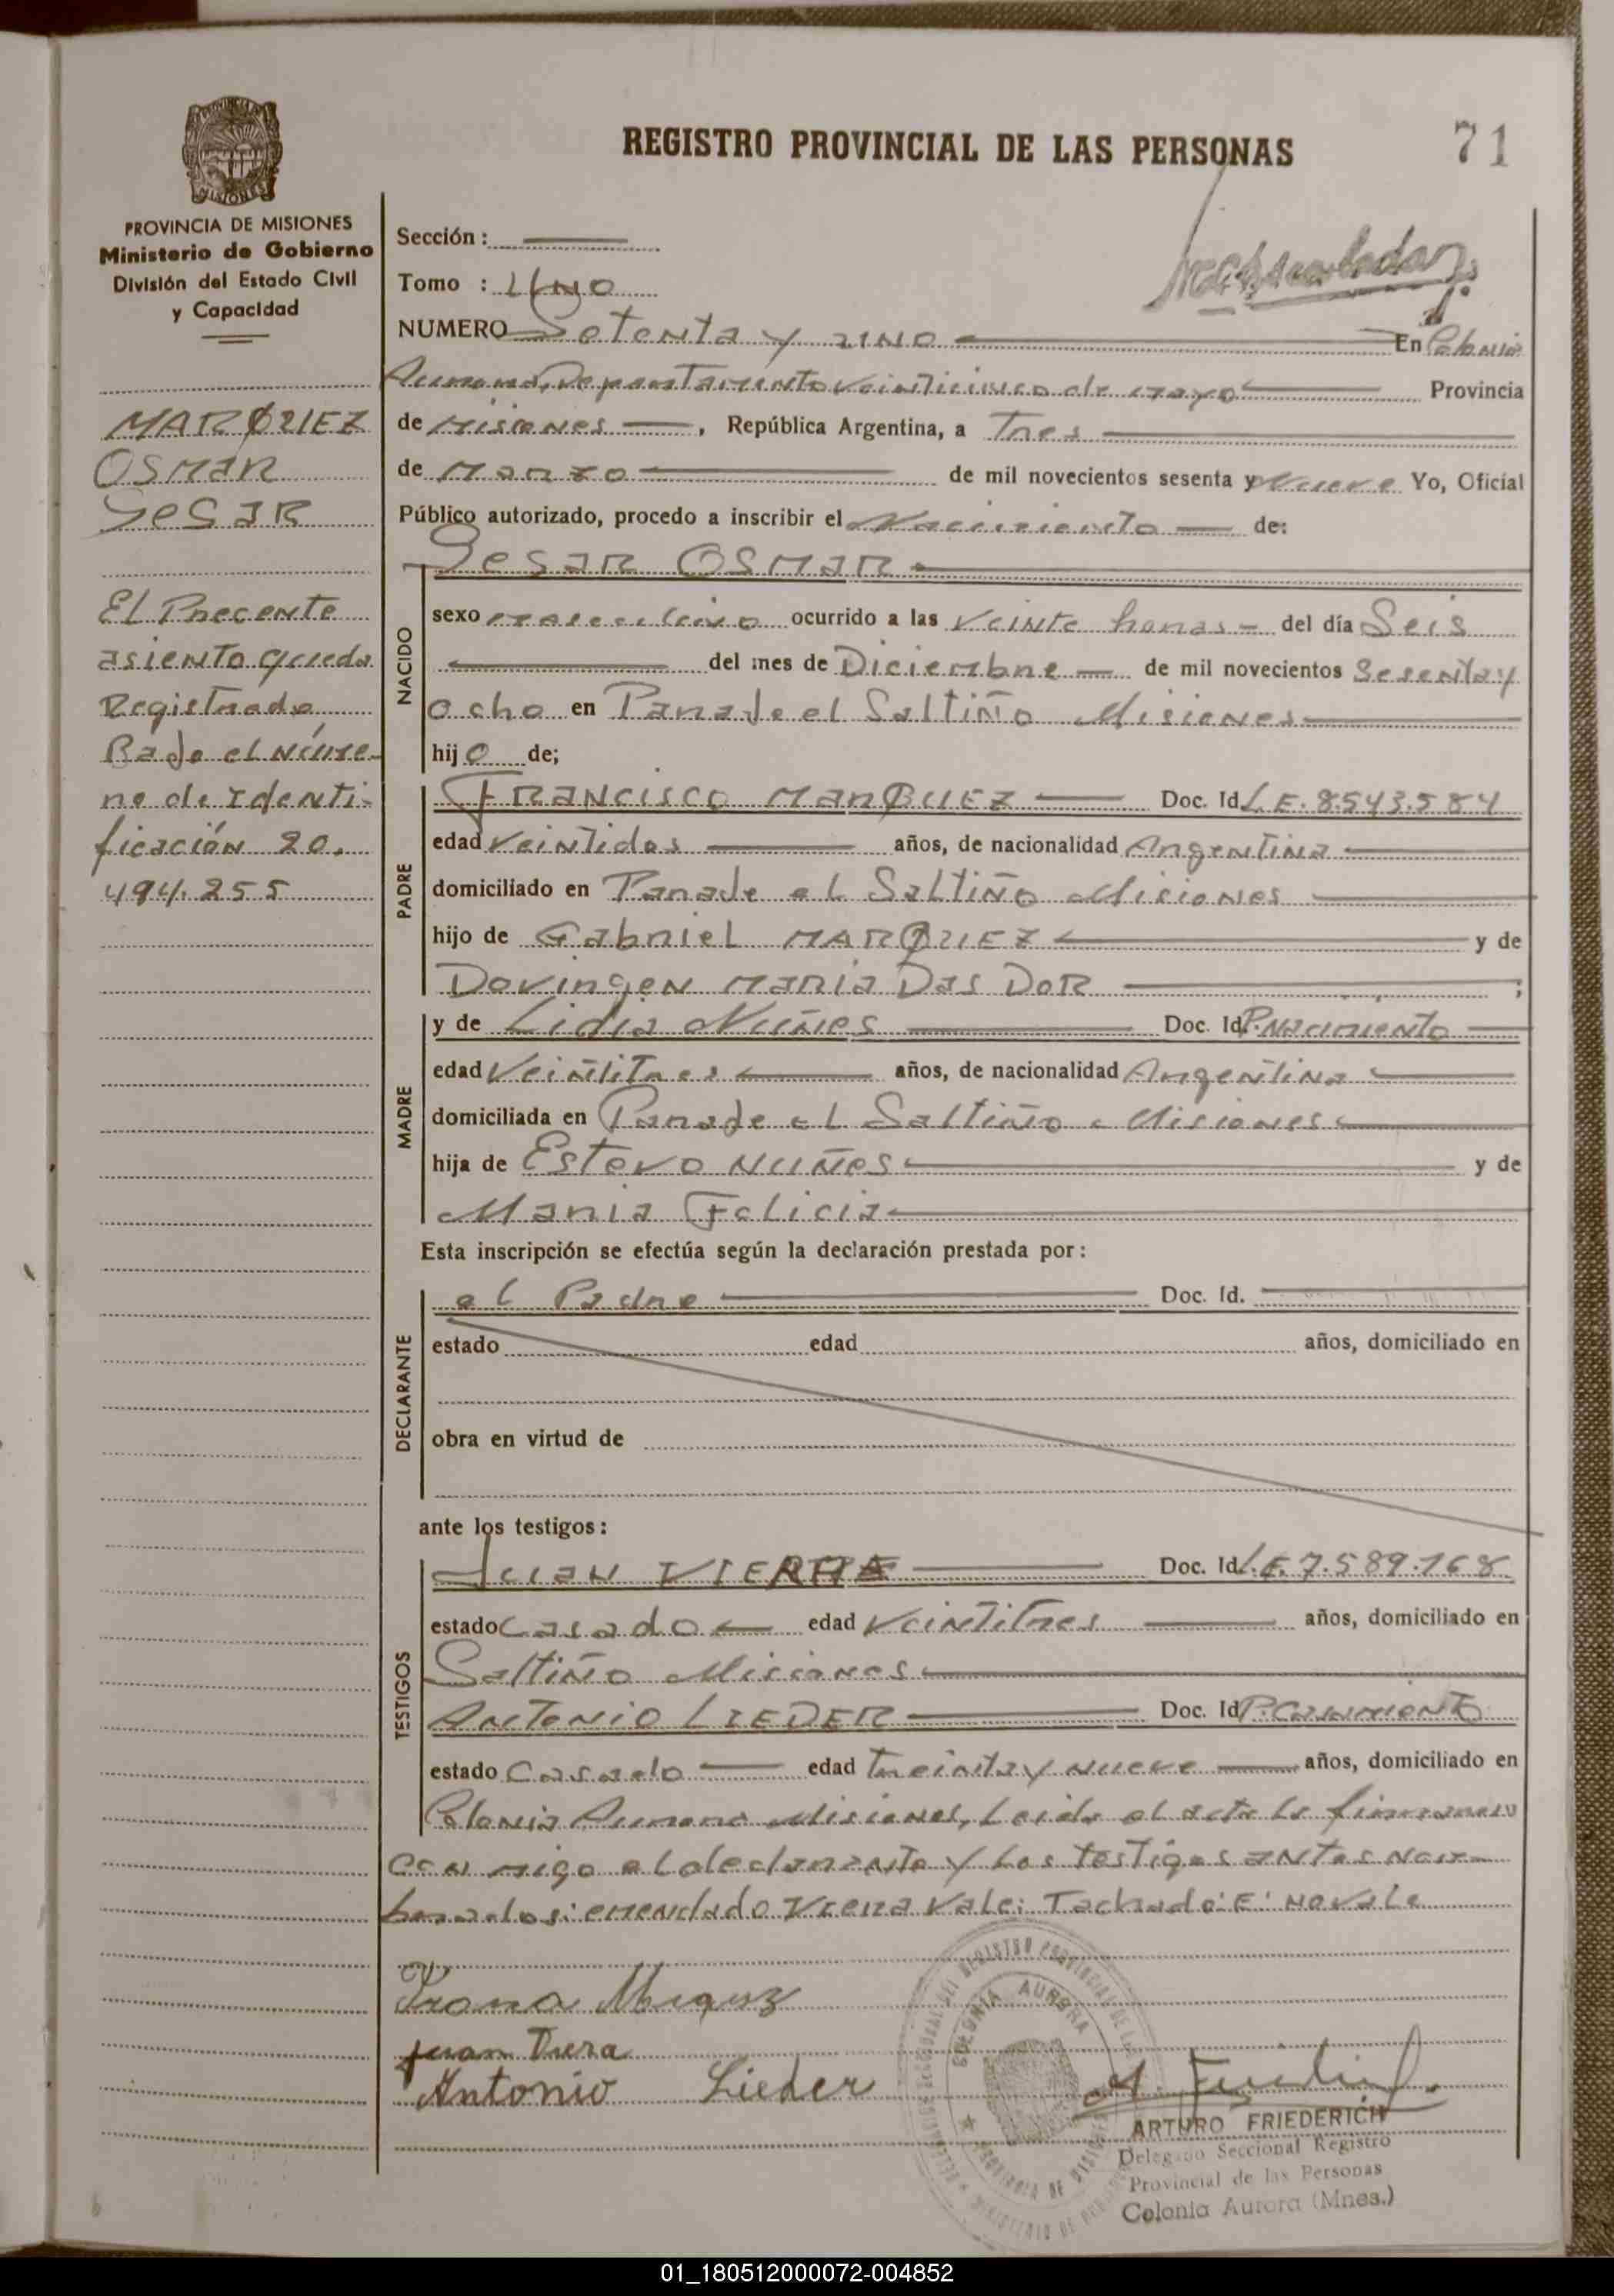 REGISTRO PROVINCIAL DE LAS PERSONAS
71
PROVINCIA DE MISIONES
Ministerio de Gobierno
División del Estado Civil
y Capacidad
MARQUEZ
OSMAR
SESAR
El Precente
asiento queda
Registrado
Bajo el núme-
ro de Identi-
ficación 20.
494.255
Sección :
Tomo : UNO
NUMERO Setenta y uno En Colonia
Aurora, Departamento veinticinco de mayo Provincia
de Misiones, República Argentina, a Tres
de Marzo de mil novecientos sesenta y Nueve Yo, Oficial
Público autorizado, procedo a inscribir el Nacimiento de:
SESAR OSMAR
NACIDO
sexo masculino ocurrido a las Veinte horas del día Seis
del mes de Diciembre de mil novecientos Sesenta y
ocho en Paraje el Saltiño Misiones
hijo de;
PADRE
FRANCISCO MARQUEZ Doc. Id L.E. 8.543.584
edad Veintidos años, de nacionalidad Argentina
domiciliado en Paraje el Saltiño Misiones
hijo de Gabriel MARQUEZ y de
Dovirgen Maria Das DOR ;
MADRE
y de Lidia Nuñes Doc. Id P. Nacimiento
edad Veintitres años, de nacionalidad Argentina
domiciliada en Paraje el Saltiño Misiones
hija de Estevo Nuñes y de
Maria Felicia
Esta inscripción se efectúa según la declaración prestada por:
DECLARANTE
el Padre Doc. Id.
estado edad años, domiciliado en
obra en virtud de
ante los testigos:
TESTIGOS
Juan Doc. Id L.E. 7.589.768
estado Casado edad Veintitres años, domiciliado en
Saltiño Misiones
ANTONIO LIEDER Doc. Id P. Casamiento
estado Casado edad Treinta y nueve años, domiciliado en
Colonia Aurora Misiones, Leida el acta la firman
con migo el declarante y los testigos antes nom-
brados: emendado vale: Tachado: E: no vale
Juan
Antonio Lieder
COLONIA AURORA
PROVINCIA DE MISIONES
ARTURO FRIEDERICH
Delegado Seccional Registro
Provincial de las Personas
Colonia Aurora (Mnes.)
01_180512000072-004852